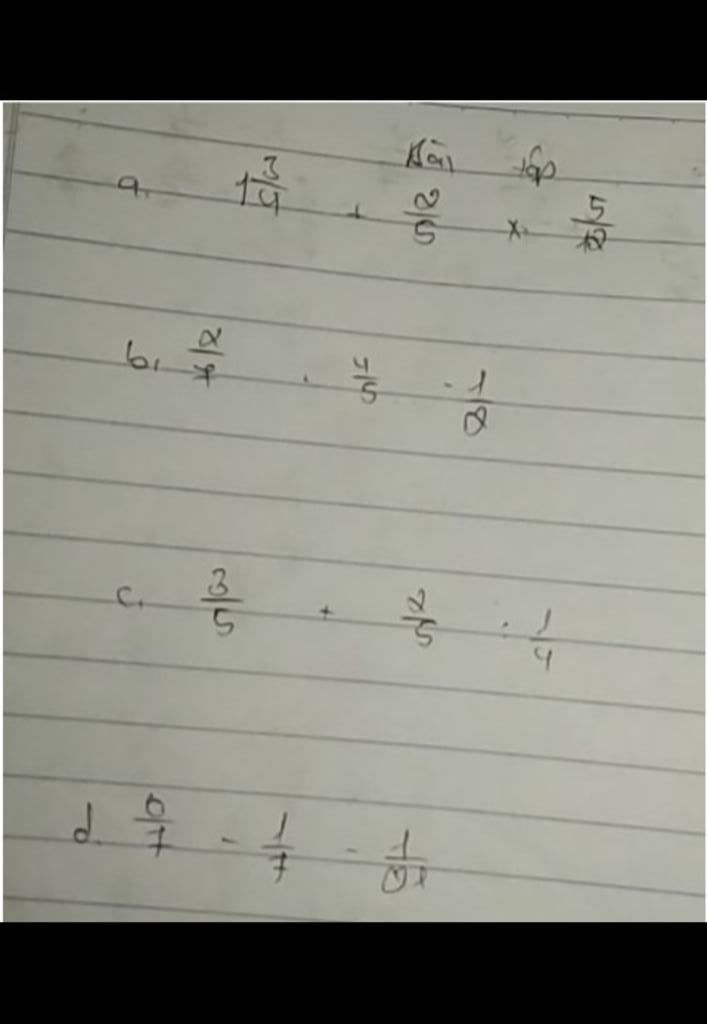 Bài tập
a. 1 3/4 + 2/5 x 5/12
b, 2/7 . 4/5 - 1/2
c, 3/5 + 2/5 : 1/4
d. 6/7 - 1/7 - 1/21